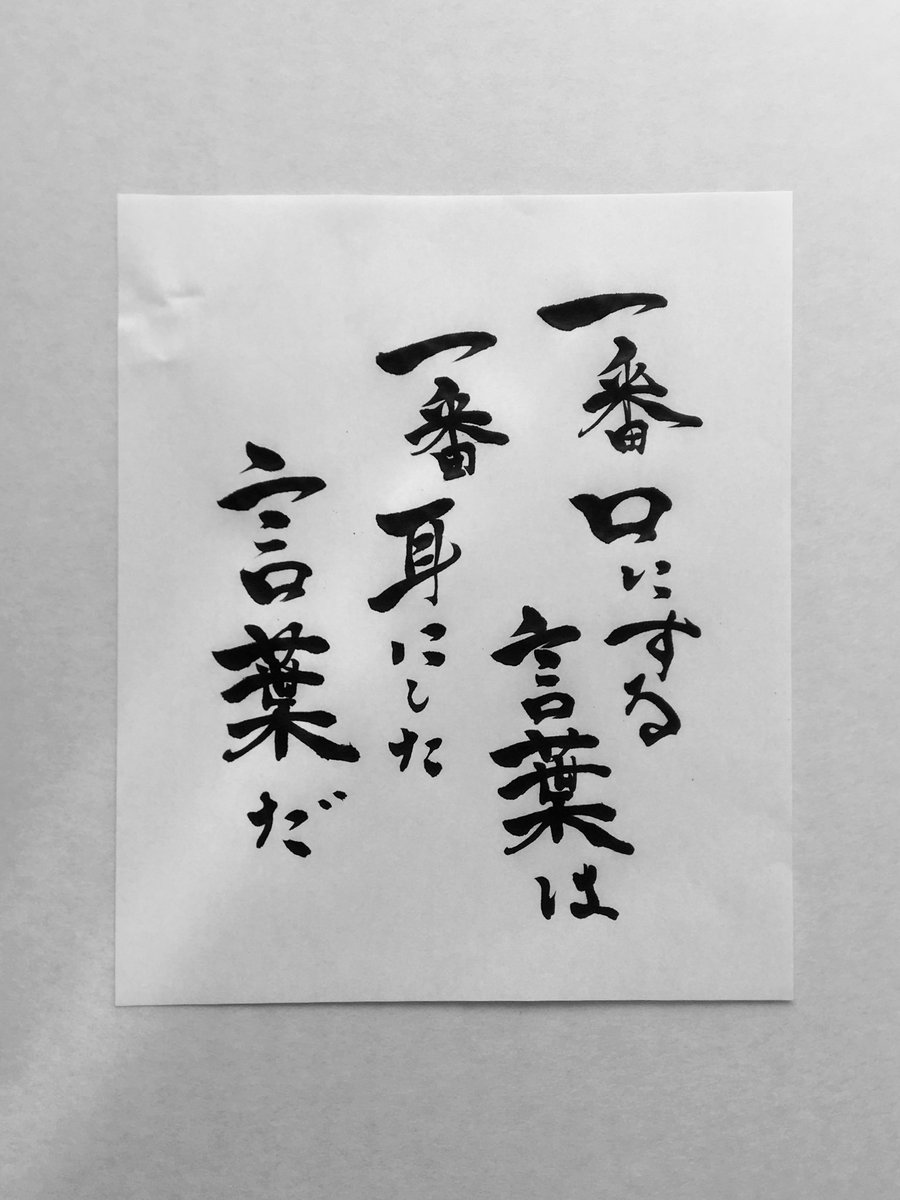 一番口にする
言葉は
一番耳にした
言葉だ